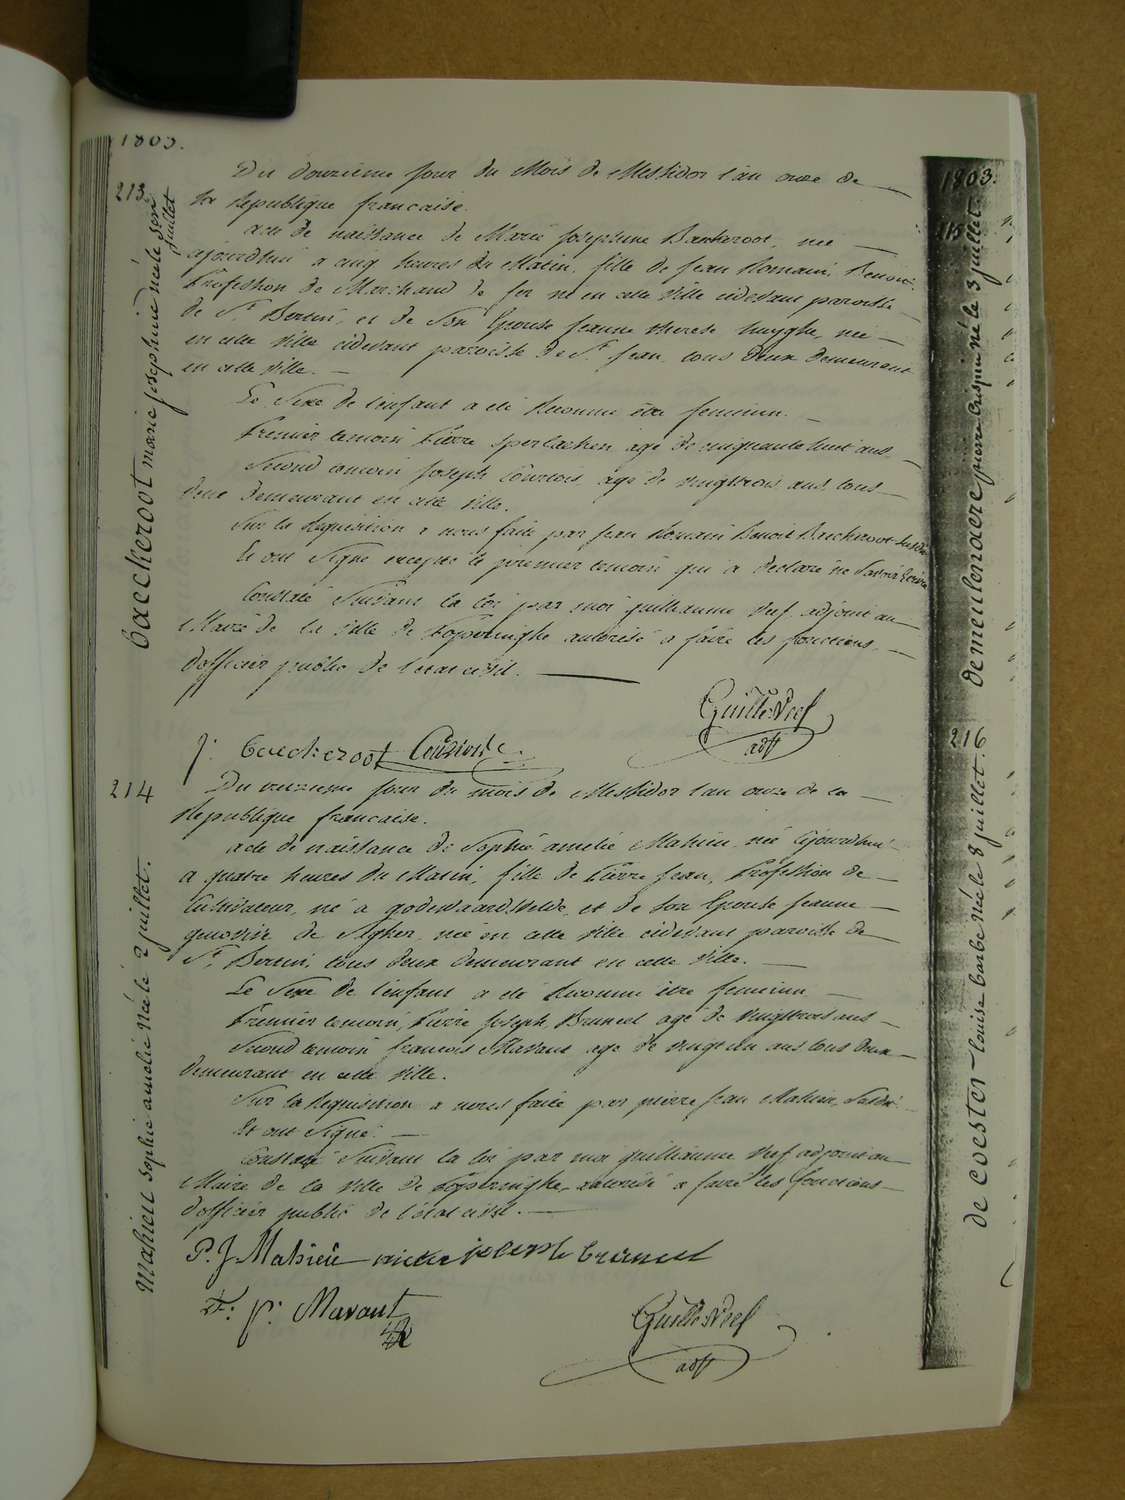 1803.
213.
baeckeroot marie josephine née le 1er juillet
Du douzieme jour du Mois de Messidor l'an onze de
la Republique francaise.
acte de naissance de Marie Josephine Backeroot, née
ajourdhui a cinq heures du Matin, fille de Jean Romain Benoit
Profession de Marchand de fer né en cette Ville cidevant paroisse
de St. Bertin, et de Son Epouse Jeanne therese huyghe, née
en cette Ville cidevant paroisse de St. Jean, tous deux demeurant
en cette Ville.
Le Sexe de l'enfant a été Reconnu être feminin.
Premier temoin Pierre Sperlaeken agé de cinquante huit ans
Second temoin Joseph Courtois agé de vingttrois ans tous
deux demeurant en cette Ville.
Sur la Requisition a nous faite par Jean Romain Benoit Backeroot Susdit
Et ont Signé excepté le premier temoin qui a declaré ne Savoir Ecrire
Constaté Suivant la loi par moi guillaume Nef adjoint au
Maire de la Ville de Poperinghe autorisé a faire les fonctions
d'officier public de l'etat civil.
Guille Neef
adjt
J: baeckeroot
214
Mahieu Sophie amelie née le 2 juillet.
Du treizieme jour du mois de Messidor l'an onze de la
Republique francaise.
acte de naissance de Sophie amelie Mahieu, née ajourdhui
a quatre heures du Matin, fille de Pierre Jean, Profession de
Cultivateur, né a godewaardsvelde, et de Son Epouse Jeanne
genovive de Sigher née en cette Ville cidevant paroisse de
St. Bertin, tous deux demeurant en cette Ville.
Le Sexe de l'enfant a été Reconnu être feminin
Premier temoin, Pierre Joseph Bruneel agé de vingttrois ans
Second temoin francois Mavaut agé de vingt un ans tous deux
demeurant en cette Ville.
Sur la Requisition a nous faite par pierre Jean Mahieu, Susdit
Et ont Signé.
Constaté Suivant la loi par moi guillaume Nef adjoint au
Maire de la Ville de Poperinghe autorisé a faire les fonctions
d'officier public de l'etat civil.
P. J. Mahieu
F: p: Mavaut
Guille Neef
adjt
1803.
215
demeulenaere pierre Crispin né le 3 juillet.
216
de coester louise barbe née le 8 juillet.